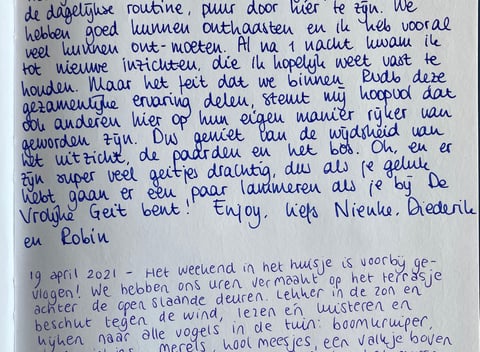 de dagelijkse routine, puur door hier te zijn. We
hebben goed kunnen onthaasten en ik heb vooral
veel kunnen ont-moeten. Al na 1 nacht kwam ik
tot nieuwe inzichten, die ik hopelijk weet vast te
houden. Maar het feit dat we binnen Budb deze
gezamenlijke ervaring delen, stemt mij hoopvol dat
ook anderen hier op hun eigen manier rijker van
geworden zijn. Dus geniet van de wijdsheid van
het uitzicht, de paarden en het bos. Oh, en er
zijn super veel geitjes drachtig, dus als je geluk
hebt gaan er een paar lammeren als je bij De
Vrolijke Geit bent! Enjoy, liefs Nienke, Diederik
en Robin
19 april 2021 - Het weekend in het huisje is voorbij ge-
vlogen! We hebben ons uren vermaakt op het terrasje
achter de openslaande deuren. Lekker in de zon en
beschut tegen de wind, lezen en luisteren en
kijken naar alle vogels in de tuin: boomkruiper,
merels, koolmeesjes, een valkje boven